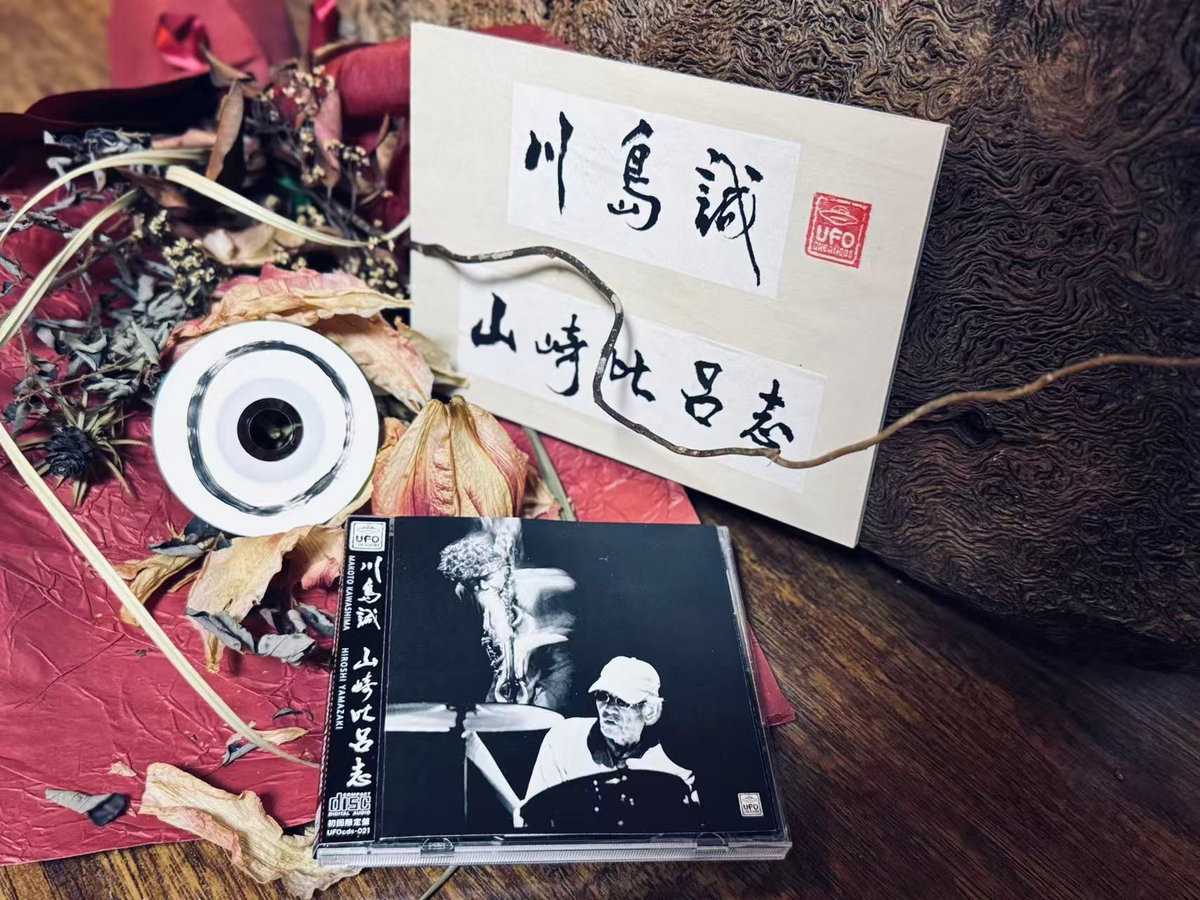 川島誠
UFO
CREATIONS
山崎比呂志
UFO
川島誠
MAKOTO KAWASHIMA
山崎比呂志
HIROSHI YAMAZAKI
COMPACT
disc
DIGITAL AUDIO
初回限定盤
UFOcds-021
UFO